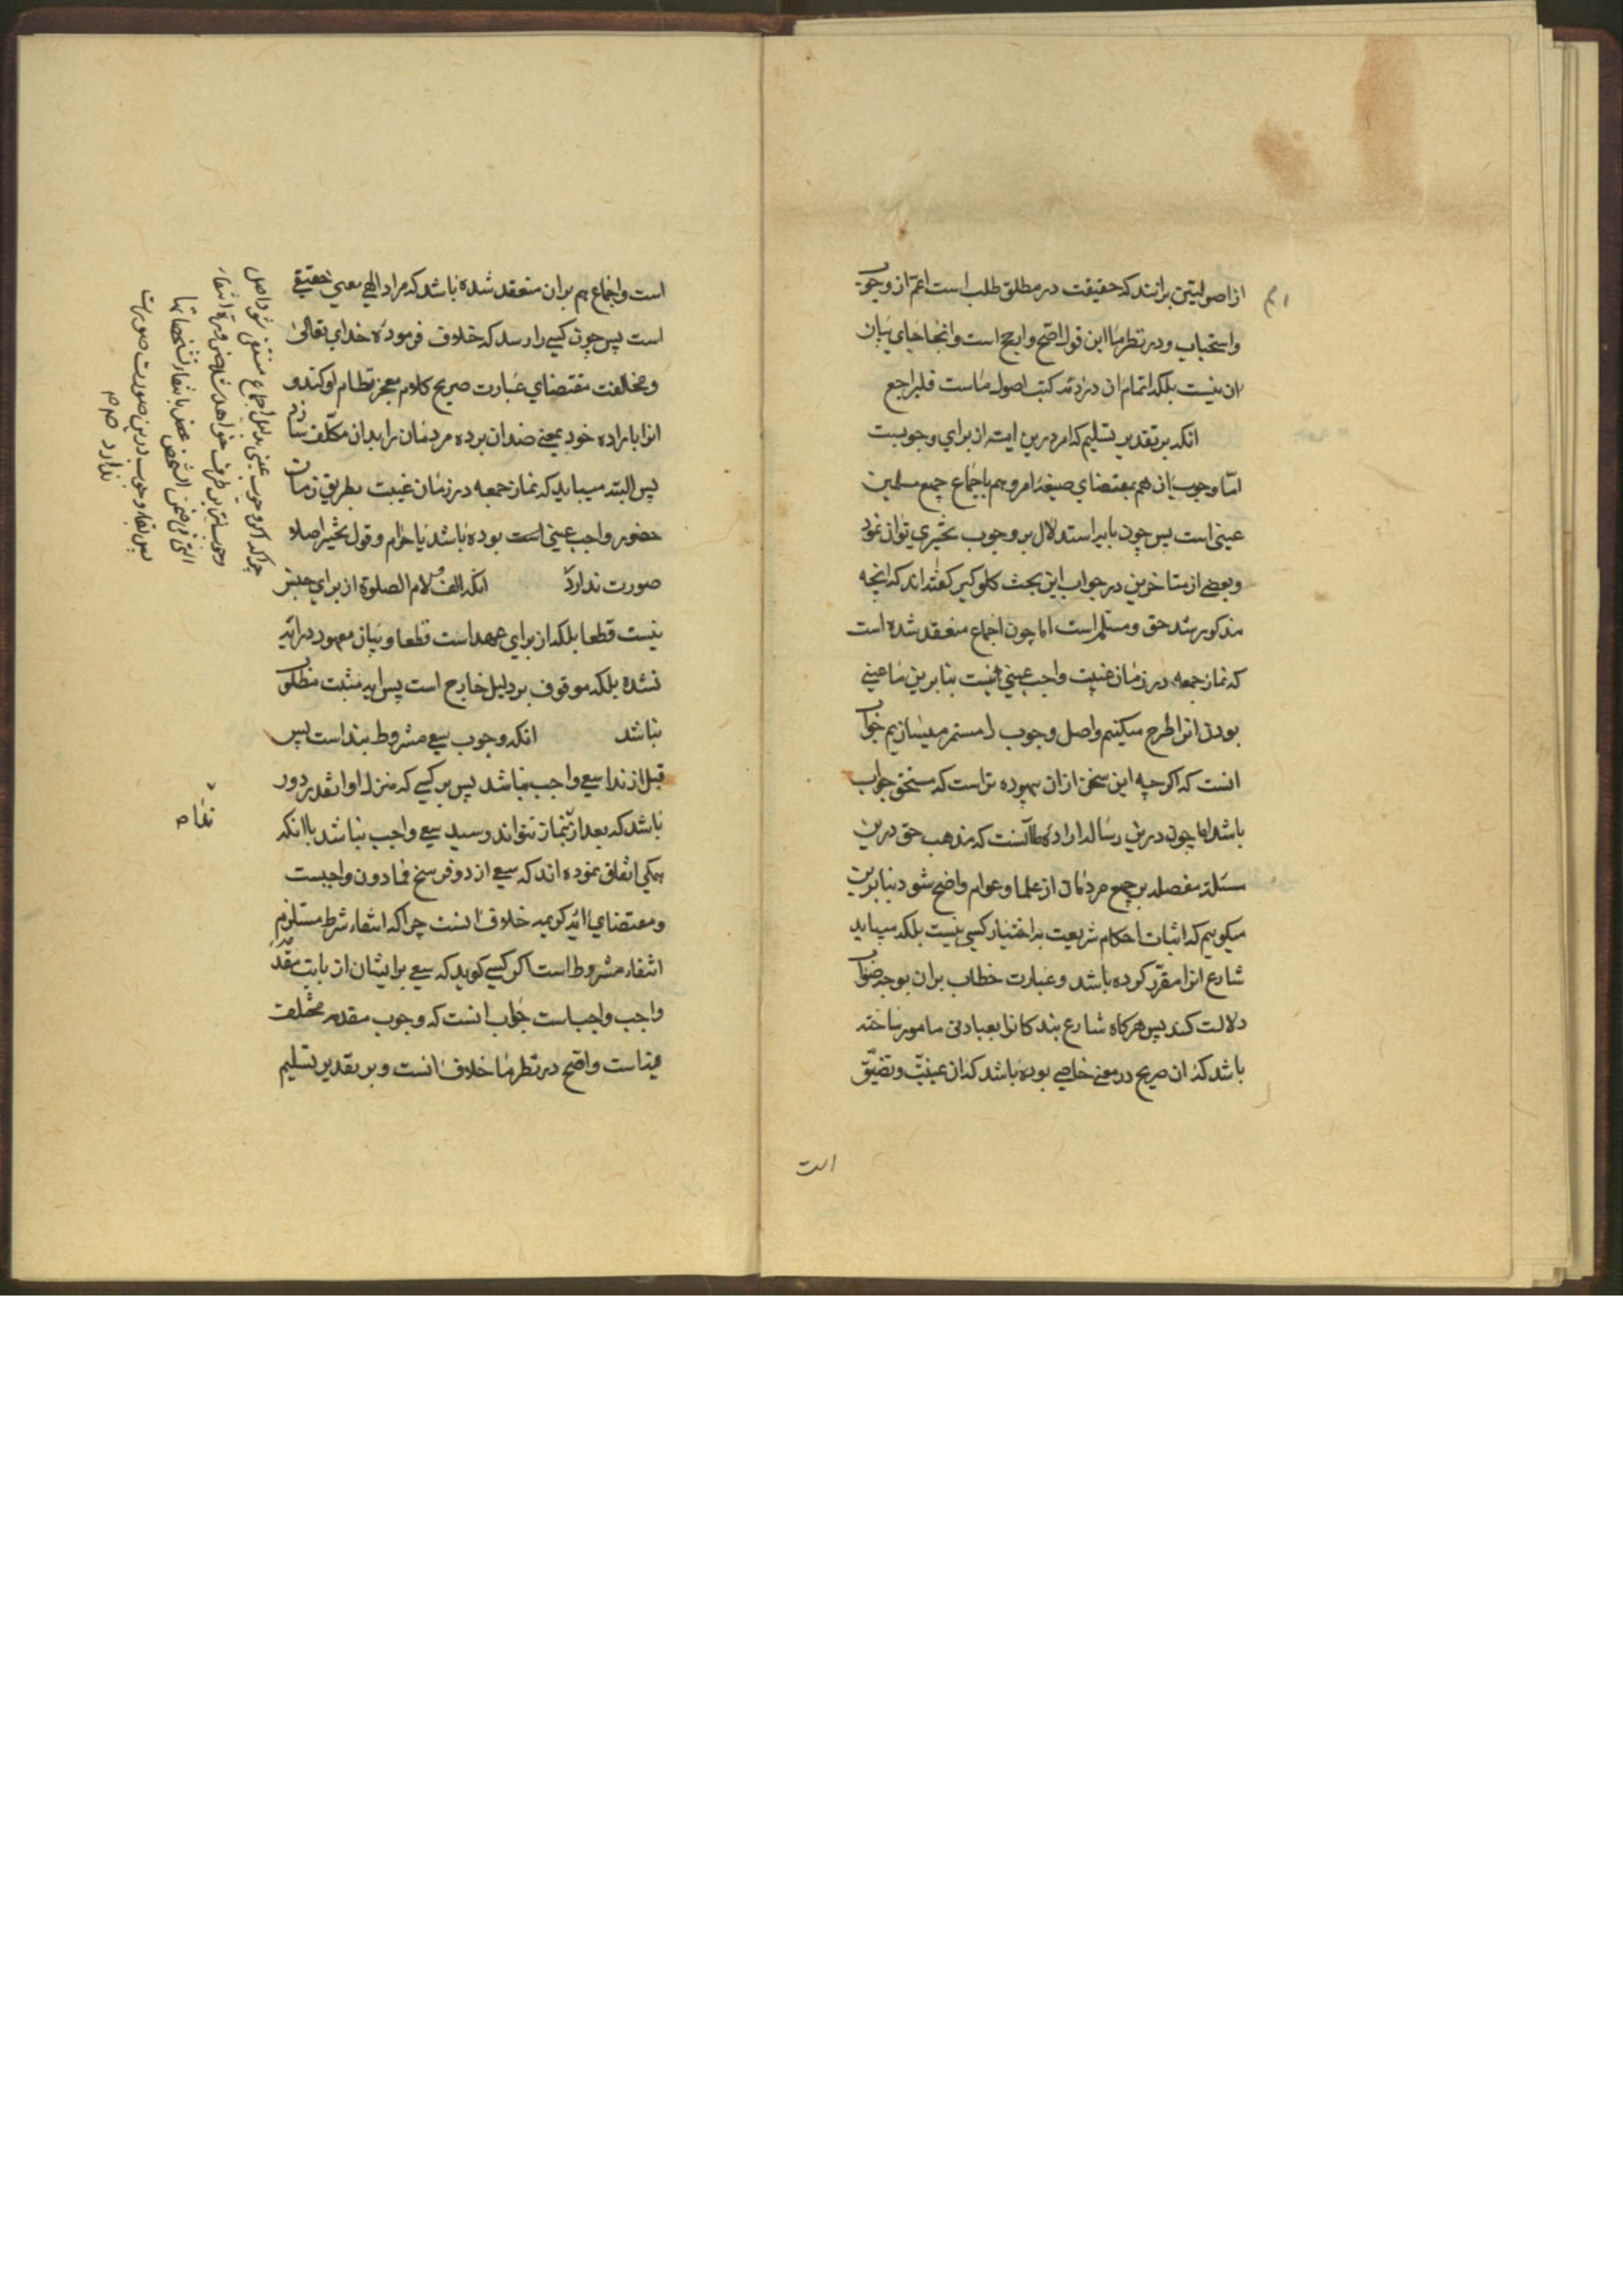 از اصولیین برانند که حقیقت در مطلق طلب است اعم از وجوب
و استحباب و در نظر ما این قول اصح و ارجح است و اینجا جای بیان
ان نیست بلکه اتمام ان در کتب اصول ماست فلیراجع
انکه بر تقدیر تسلیم که امر درین ایه از برای وجوبست
اما وجوب ان هم بمقتضای صیغه امر و هم باجماع جمیع مسلمین
عینی است پس چون باین استدلال بر وجوب تخییری توان نمود
و بعضی از متاخرین در جواب این بحث کلوکیر گفته اند که انچه
مذکور شد حق و مسلم است اما چون اجماع منعقد شده است
که نماز جمعه در زمان غیبت واجب عینی نیست بنا برین ما عینی
بودن انرا طرح میکنیم و اصل وجوب را مستمر میسازیم جواب
انست که اکرچه این سخن ازان بیهوده تر است که مستحق جواب
باشد اما چون درین رساله اراده ما آنست که مذهب حق درین
مسئله مفصله بر جمیع مردمان از علما و عوام واضح شود بنا برین
میکوییم که اثبات احکام شریعت به اختیار کسی نیست بلکه میباید
شارع انرا مقرر کرده باشد و عبارت خطاب بران بوجه صواب
دلالت کند پس هرکاه شارع بندکانرا بعبادتی مامور ساخته
باشد که ان صریح در معنی خاصی بوده باشد که ان عینیت و تضیق
است
است و اجماع هم بران منعقد شده باشد که مراد الهی معنی حقیقی
است پس چون کسی را رسد که خلاف فرموده خدای تعالی
و مخالفت مقتضای عبارت صریح کلام معجز نظام او کند و
انرا باراده خود بمعنی ضد ان برده مردمان را بدان مکلف سازد
پس البته میباید که نماز جمعه در زمان غیبت بطریق زمان
حضور واجب عینی است بوده باشد یا حرام و قول بتخییر اصلا
صورت ندارد انکه الف و لام الصلوة از برای جنس
نیست قطعا بلکه از برای عهد است قطعا و بیان معهود در ایه
نشده بلکه موقوف بر دلیل خارج است پس ایه مثبت مطلوب
نباشد انکه وجوب سعی مشروط بنداست پس
قبل از ندا سعی واجب نباشد پس بر کسی که منزل او انقدر دور
باشد که بعد از بنماز نتواند رسید سعی واجب نباشد با انکه
همکی اتفاق نموده اند که سعی از دو فرسخ فما دون واجبست
و مقتضای ایه کریمه خلاف انست چرا که انتفاء شرط مستلزم
انتفاء مشروط است اکر کسی کوید که سعی برایشان از بابت مقدمه
واجب واجب است جواب انست که وجوب مقدمه مختلف
فیه است و اصح در نظر ما خلاف انست و بر تقدیر تسلیم
چرا که اکر وجوب عینی بدلیل اجماع منتفی شود اصل
پس بقاء وجوب درین صورت صورت
ندارد
نداء